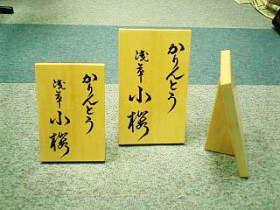 かりんとう
浅草小桜
かりんとう
浅草小桜